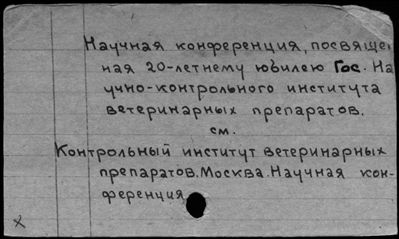 Научная конференция, посвящен
ная 20-летнему юбилею Гос. На
учно-контрольного института
ветеринарных препаратов.
см.
Контрольный институт ветеринарных
препаратов. Москва. Научная кон-
ференция
x